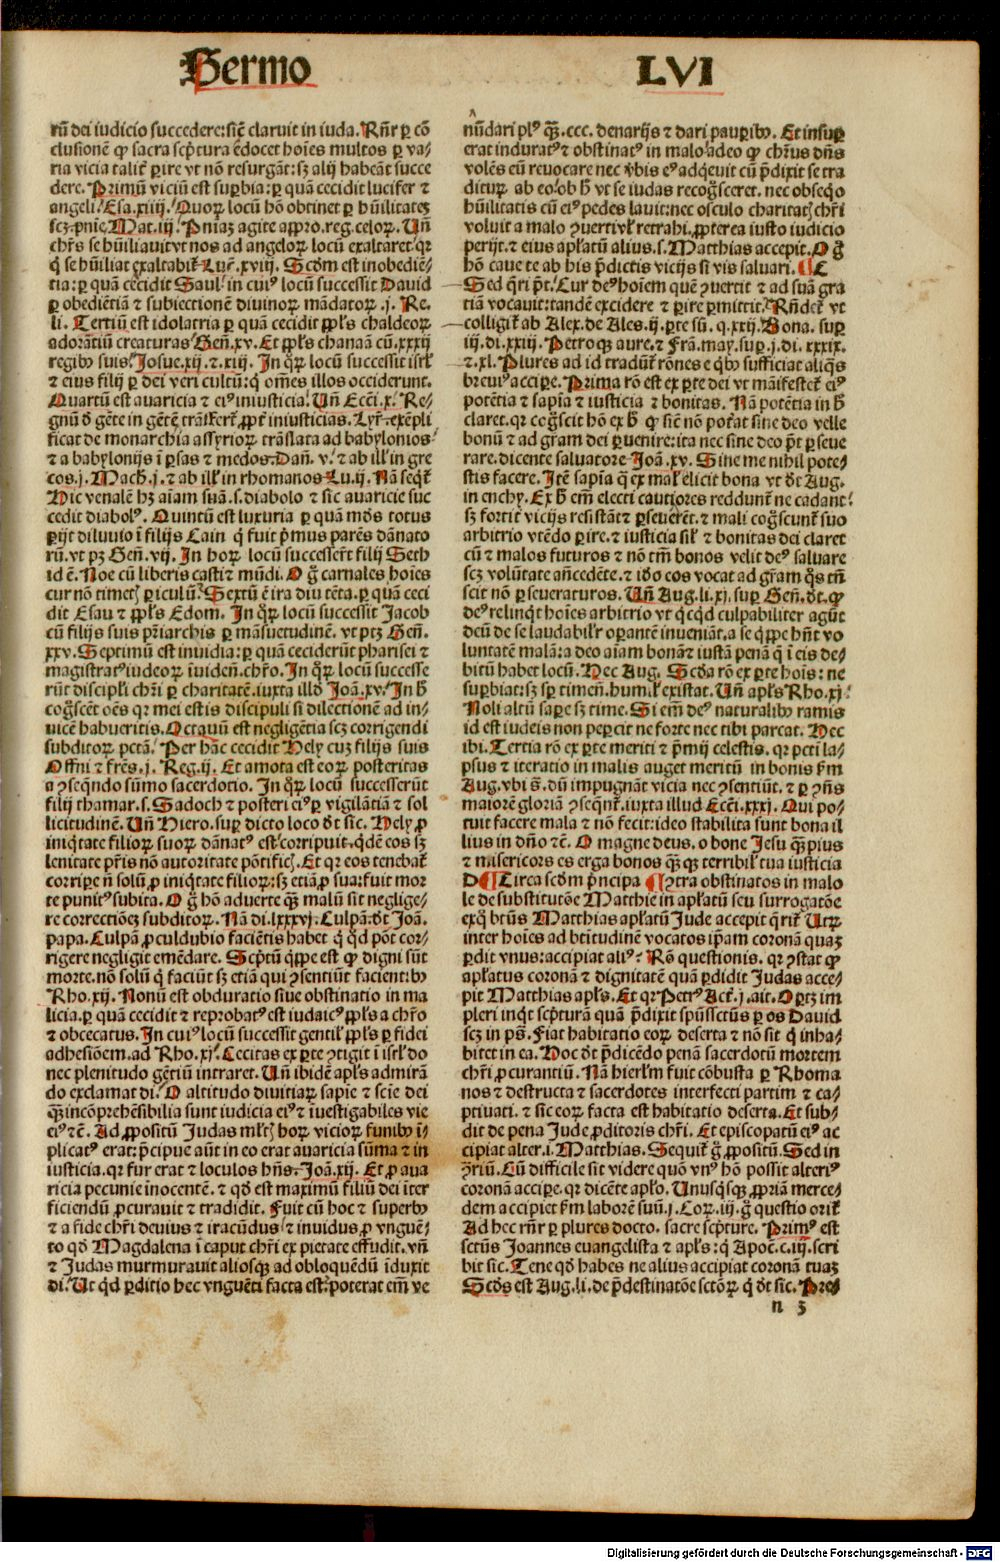 Sermo LVI
rū dei iudicio succedere: sic̄ claruit in iuda. Rn̄r ꝑ cō
clusionē ꝙ sacra scp̄tura ēdocet hoīes multos ꝑ va/
ria vicia talit̄ ꝑire vt nō resurgāt: sꝫ alij habeāt succe
dere. Primū viciū est suꝑbia: ꝑ quā cecidit lucifer ⁊
angeli. Esa. xiiij. Quoꝝ locū hō obtinet ꝑ hūilitateꝫ
scꝫ. pnīe. Mat. iij. Pniaꝫ agite apꝓ. reg. celoꝝ. Un̄
chr̄s se hūiliauit vt nos ad angeloꝝ locū exaltaret. qr
q̄ se hūiliat exaltabit̄ Luc̄. xviij. Scd̄m est inobediē/
tia: ꝑ quā cecidit Saul. in cuiꝰ locū successit Dauid
ꝑ obediētiā ⁊ subiectionē diuinoꝝ mādatoꝝ. j. Re.
li. Tertiū est idolatria ꝑ quā cecidit ppl̄s chaldeoꝝ
adorātiū creaturas Gen̄. xv. Et ppl̄s chanaā cū. xxxij
regibꝰ suis. Josue. xij. ⁊. xiij. In qꝝ locū successit isrl̄
⁊ eius filij ꝑ dei veri cultū: q̄ om̄es illos occiderunt.
Quartū est auaricia ⁊ eiꝰ iniusticia. Un̄ Ecci. x. Re/
gnū ð gēte in gētē trāsfert̄ ꝓpt̄ iniusticias. Lyr̄. exēpli
ficat de monarchia assyrioꝝ trāslata ad babylonios
⁊ a babylonijs ī ꝑsas ⁊ medos. Dan̄. v. ⁊ ab ill̄ in gre
cos. j. Mach. j. ⁊ ab ill̄ in rhomanos Lu. ij. Nā seq̄t̄
Hic venalē hꝫ aīam suā. s. diabolo ⁊ sic auaricie suc
cedit diabolꝰ. Quintū est luxuria ꝑ quā mūdꝰ totus
ꝑijt diluuio ī filijs Cain q̄ fuit p̄mus parēs dānato
rū. vt pꝫ Gen̄. vij. In hoꝝ locū successerūt filij Seth
id ē. Noe cū liberis casti ⁊ mūdi. O g̊ carnales hoīes
cur nō timetis ꝑiculū. Sextū ē ira diutēta. ꝑ quā ceci
dit Esau ⁊ ppl̄s Edom. In qꝝ locū successit Jacob
cū filijs suis pr̄iarchis ꝑ māsuetudinē. vt ptꝫ Gen̄.
xxv. Septimū est inuidia: ꝑ quā ceciderūt pharisei ⁊
magistratꝰ iudeoꝝ īuidēn. chr̄o. In qꝝ locū successe
rūt discipl̄i chr̄i ꝑ charitatē. iuxta illd̄ Joā. xv. In h̄
cogscēt oēs qr mei estis discipuli si dilectionē ad in/
uicē habueritis. Octauū est negligētia scꝫ corrigendi
subditoꝝ pctā. Per hāc cecidit Hely cuꝫ filijs suis
Offni ⁊ frēs. j. Reg. ij. Et amota est eoꝝ posteritas
a ꝯseqn̄do sūmo sacerdotio. In qꝝ locū successerūt
filij thamar. s. Sadoch ⁊ posteri eiꝰ ꝑ vigilātiā ⁊ sol
licitudinē. Un̄ Hiero. suꝑ dicto loco dt̄ sic. Hely ꝓ
iniqtate filioꝝ suoꝝ dānatꝰ est. corripuit. qdē eos sꝫ
lenitate pr̄is nō autoritate pōtificis. Et qr eos tenebat̄
corripe n̄ solū ꝓ iniqtate filioꝝ: sꝫ etiā ꝓ sua: fuit mor
te punitꝰ subita. O g̊ hō aduerte qꝫ malū sit neglige/
re correctiōeꝫ subditoꝝ. Nā di. lxxxvj. Culpā. dt̄ Joā.
papa. Culpā ꝓculdubio faciētis habet q̄ qd̄ pōt cor/
rigere negligit emēdare. Scp̄tū q̄ppe est ꝙ digni sūt
morte. nō solū q̄ faciūt sꝫ etiā qui ꝯsentiūt facientibꝰ
Rho. xij. Nonū est obduratio siue obstinatio in ma
licia. ꝑ quā cecidit ⁊ reprobatꝰ est iudaicꝰ ppl̄s a chr̄o
⁊ obcecatus. In cuiꝰ locū successit gentil̄ ppl̄s ꝑ fidei
adhesiōem. ad Rho. xj. Cecitas ex ꝑte ꝯtigit ī isrl̄ do
nec plenitudo gētiū intraret. Un̄ ibidē apl̄s admirā
do exclamat di. O altitudo diuitiaꝝ sapīe ⁊ sciē dei
qꝫ incōprehēsibilia sunt iudicia eiꝰ ⁊ īuestigabiles vie
eiꝰ ⁊c̄. Ad ꝓpositū Judas ml̄tis hoꝝ vicioꝝ funibꝰ ī/
plicatꝰ erat: p̄cipue aūt in eo erat auaricia sūma ⁊ in
iusticia. qr fur erat ⁊ loculos hn̄s. Joā. xij. Et ꝓ aua
ricia pecunie īnocentē. ⁊ qd̄ est maximū filiū dei īter
ficiendū ꝓcurauit ⁊ tradidit. Fuit cū hoc ⁊ superbꝰ
⁊ a fide chr̄i deuius ⁊ iracūdus ⁊ inuidus ꝓ vnguē/
to qd̄ Magdalena ī caput chr̄i ex pietate effudit. vn̄
⁊ Judas murmurauit aliosqꝫ ad obloquēdū īduxit
di. Ut qd̄ ꝑditio hec vnguēti facta est. poterat em̄ ve
nūdari plꝰ qꝫ. ccc. denarijs ⁊ dari pauꝑibꝰ. Et insuꝑ
erat induratꝰ ⁊ obstinatꝰ in malo adeo ꝙ chr̄us dn̄s
volēs eū reuocare nec v̄bis eꝰ adqeuit cū p̄dixit se tra
diturū ab eo. ob h̄ vt se iudas recogsceret. nec obseqo
hūilitatis cū eiꝰ pedes lauit: nec osculo charitatis chr̄i
voluit a malo ꝯuerti vl̄ retrahi. ꝓpterea iusto iudicio
perijt. ⁊ eius apl̄atū alius. s. Matthias accepit. O g̊
hō caue te ab his p̄dictis vicijs si vis saluari. ¶ C
Sed qri pt̄. Cur deꝰ hoīem quē ꝯuertit ⁊ ad suā gra
tiā vocauit: tandē excidere ⁊ ꝑire permittit. Rn̄det̄ vt
colligit̄ ab Alex. de Ales. ij. ꝑte sū. q. xxij. Bona. suꝑ
iij. di. xxiij. Petroqꝫ aure. ⁊ Frā. may. suꝑ. j. di. xxxix.
⁊. xl. Plures ad id tradūt̄ rōnes e qbꝰ sufficiat aliqs
breuiꝰ accipe. Prima rō est ex ꝑte dei vt māifestet̄ eiꝰ
potētia ⁊ sapīa ⁊ iusticia ⁊ bonitas. Nā potētia in h̄
claret. qr cogscit hō ex h̄ ꝙ sic̄ nō potat̄ sine deo velle
bonū ⁊ ad gram dei ꝑuenire: ita nec sine deo pt̄ ꝑseue
rare. dicente saluatore Joā. xv. Sine me nihil pote/
stis facere. Itē sapīa q̄ ex mal̄ elicit bona vt dt̄ Aug.
in enchy. Ex h̄ em̄ electi cautiores reddunt̄ ne cadant:
sꝫ fortit̄ vicijs resistāt ⁊ ꝑseuerēt. ⁊ mali cogscunt̄ suo
arbitrio vtēdo ꝑire. ⁊ iusticia sil̄ ⁊ bonitas dei claret
cū ⁊ malos futuros ⁊ nō tm̄ bonos velit deꝰ saluare
scꝫ volūtate an̄cedēte. ⁊ iðo eos vocat ad gram qs tn̄
scit nō ꝑseueraturos. Un̄ Aug. li. xj. suꝑ Gen̄. dt̄. ꝙ
deꝰ relinqt hoīes arbitrio vt qcqd culpabiliter agūt
deū de se laudabil̄r oꝑantē inueniāt. a se qppe hn̄t vo
luntatē malā: a deo aīam bonā ⁊ iustā penā q̄ ī eis de/
bitū habet locū. Hec Aug. Scd̄a rō ex ꝑte hoīs: ne
suꝑbiat: sꝫ sp̄ timen̄. humil̄ existat. Un̄ apl̄s Rho. xj
Noli altū saꝑe sꝫ time. Si em̄ deꝰ naturalibꝰ ramis
id est iudeis non peꝑcit ne forte nec tibi parcat. Hec
ibi. Tertia rō ex ꝑte meriti ⁊ p̄mij celestis. qr pcti la/
psus ⁊ iteratio in malis auget meritū in bonis fm̄
Aug. vbi s̄. dū impugnāt vicia nec ꝯsentiūt. ⁊ ꝑ ꝯn̄s
maiorē gloriā ꝯseqnt̄. iuxta illud Ecci. xxxj. Qui po/
tuit facere mala ⁊ nō fecit: ideo stabilita sunt bona il
lius in dn̄o ⁊c̄. O magne deus. o bone Jesu qꝫ pius
⁊ misericors es erga bonos qꝫqꝫ terribil̄ tua iusticia
D¶ Circa scd̄m p̄ncipa ¶ ꝯtra obstinatos in malo
le de substitutōe Matthie in apl̄atū seu surrogatōe
ex q̄ btūs Matthias apl̄atū Jude accepit qrit̄ Utꝝ
inter hoīes ad btitudinē vocatos ip̄am coronā quaꝫ
ꝑdit vnus: accipiat aliꝰ. Rō questionis. qr ꝯstat ꝙ
apl̄atus coronā ⁊ dignitatē quā ꝑdidit Judas acce/
pit Matthias apl̄s. Et qr Petrꝰ Act̄. j. ait. Oꝑtꝫ im
pleri inqt scp̄turā quā p̄dixit sp̄ūssctūs ꝑ os Dauid
scꝫ in ps̄. Fiat habitatio eoꝝ deserta ⁊ nō sit q̄ inha/
bitet in ea. Hoc dt̄ p̄dicēdo penā sacerdotū mortem
chr̄i ꝓcurantiū. Nā hierl̄m fuit cōbusta ꝑ Rhoma
nos ⁊ destructa ⁊ sacerdotes interfecti partim ⁊ ca/
ptiuati. ⁊ sic eoꝝ facta est habitatio deserta. Et sub/
dit de pena Jude ꝓditoris chr̄i. Et episcopatū eiꝰ ac
cipiat alter. i. Matthias. Sequit̄ g̊ ꝓpositū. Sed in
ꝯriū. Cū difficile sit videre quō vnꝰ hō possit alteriꝰ
coronā accipe. qr dicēte apl̄o. Unusqsqꝫ ꝓpriā merce/
dem accipiet fm̄ laborē suū. j. Coꝝ. iij. g̊ questio orit̄
Ad hec rn̄r ꝑ plures docto. sacre scp̄ture. Primꝰ est
sctūs Joannes euangelista ⁊ apl̄s: q̄ Apoc̄. c. iij. scri
bit sic. Tene qd̄ habes ne alius accipiat coronā tuaꝫ
Scd̄s est Aug. li. de p̄destinatōe sctōꝝ q̄ dt̄ sic. Pre/
n 3
Digitalisierung gefördert durch die Deutsche Forschungsgemeinschaft - DFG